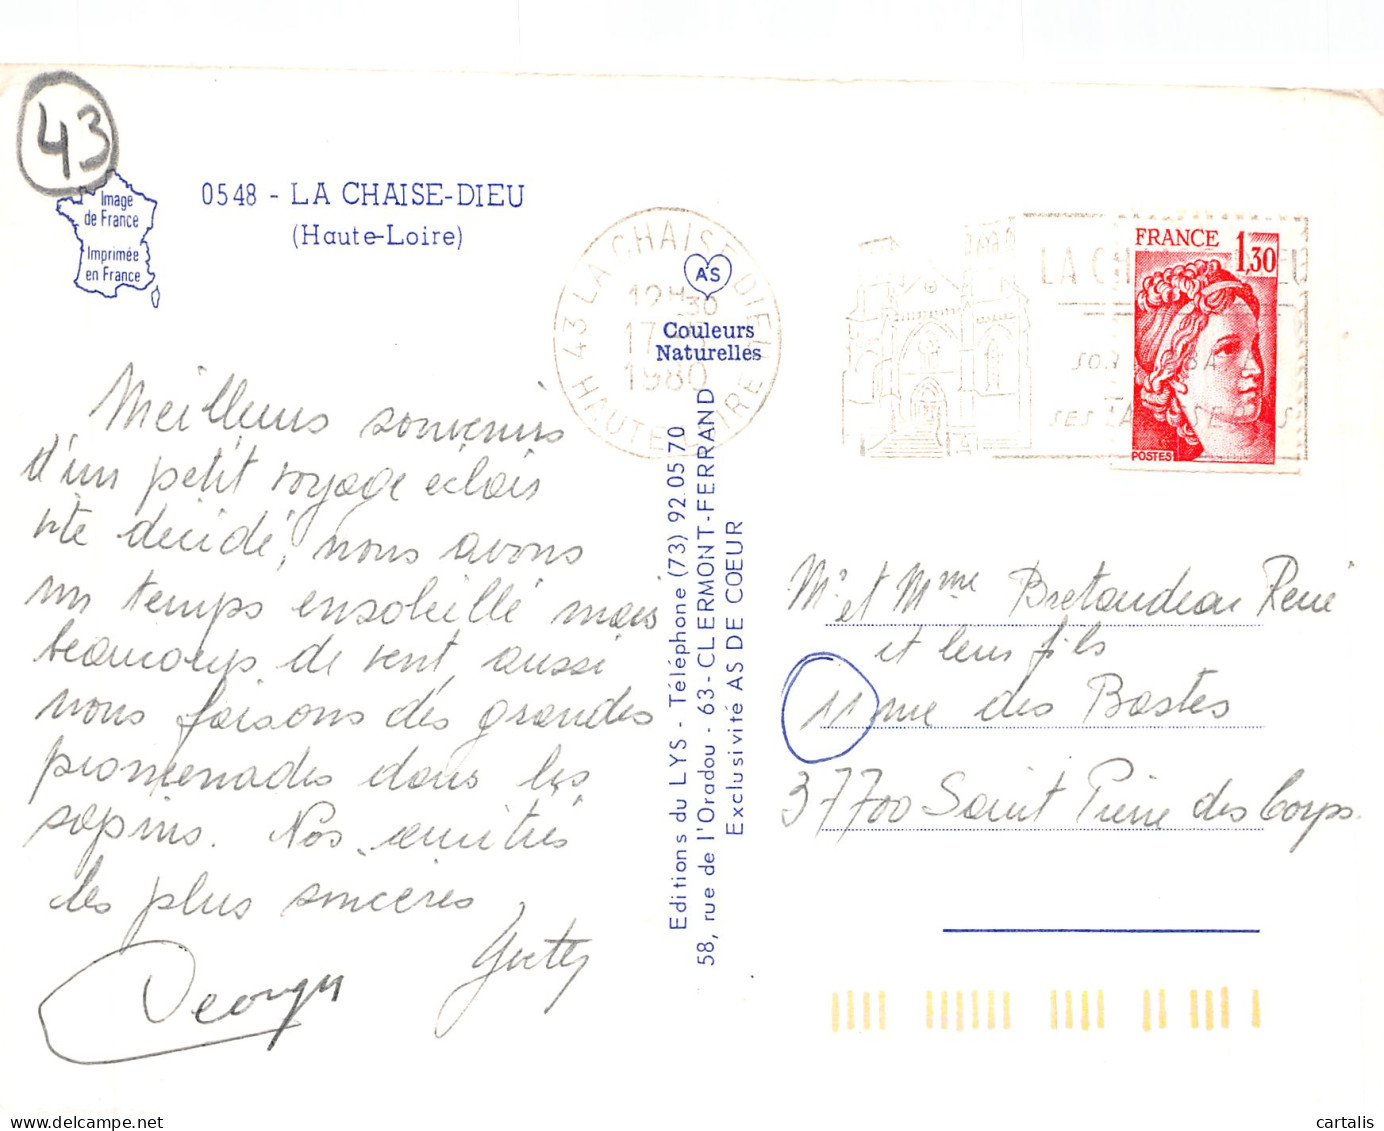 43
Image
de France
Imprimée
en France
0548 - LA CHAISE-DIEU
(Haute-Loire)
43 LA CHAISE DIEU
12H30
17
1980
HAUTE LOIRE
AS
Couleurs
Naturelles
FRANCE 1,30
POSTES
Meilleurs souvenirs
d'un petit voyage éclair
vite décidé, nous avons
un temps ensoleillé mais
beaucoup de vent, aussi
nous faisons des grandes
promenades dans les
sapins. Nos amitiés
les plus sincères
Georges
Editions du LYS - Téléphone (73) 92.05 70
58, rue de l'Oradou - 63 - CLERMONT-FERRAND
Exclusivité AS DE COEUR
Mr et Mme Bretaudeau René
et leur fils
11 rue des Bastes
37700 Saint Pierre des Corps.
cartalis cartalis.delcampe.net